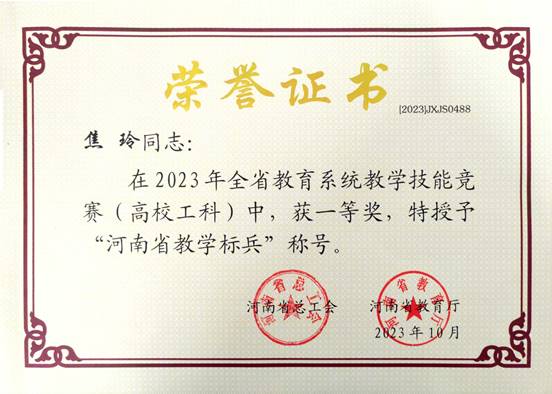 荣誉证书
[2023]JXJS0488
焦 玲同志：
在2023年全省教育系统教学技能竞
赛（高校工科）中，获一等奖，特授予
“河南省教学标兵”称号。
河南省总工会
河南省教育厅
河南省总工会 河南省教育厅
2023年10月